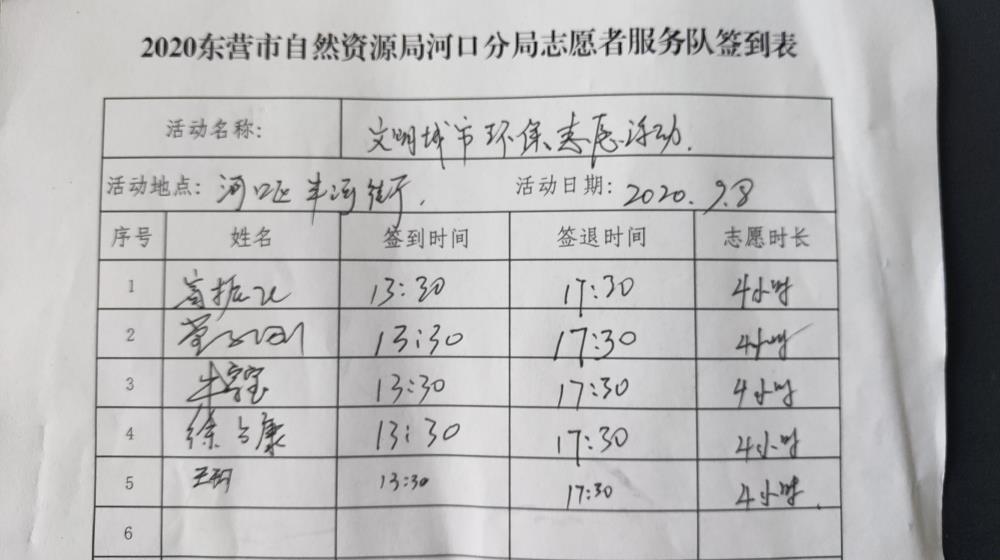 2020东营市自然资源局河口分局志愿者服务队签到表
活动名称: 文明城市环保志愿活动.
活动地点: 河口区丰河街. 活动日期: 2020.9.8
序号 姓名 签到时间 签退时间 志愿时长
1 高振 13:30 17:30 4小时
2 13:30 17:30 4小时
3 牛 13:30 17:30 4小时
4 徐 康 13:30 17:30 4小时
5 王 13:30 17:30 4小时.
6